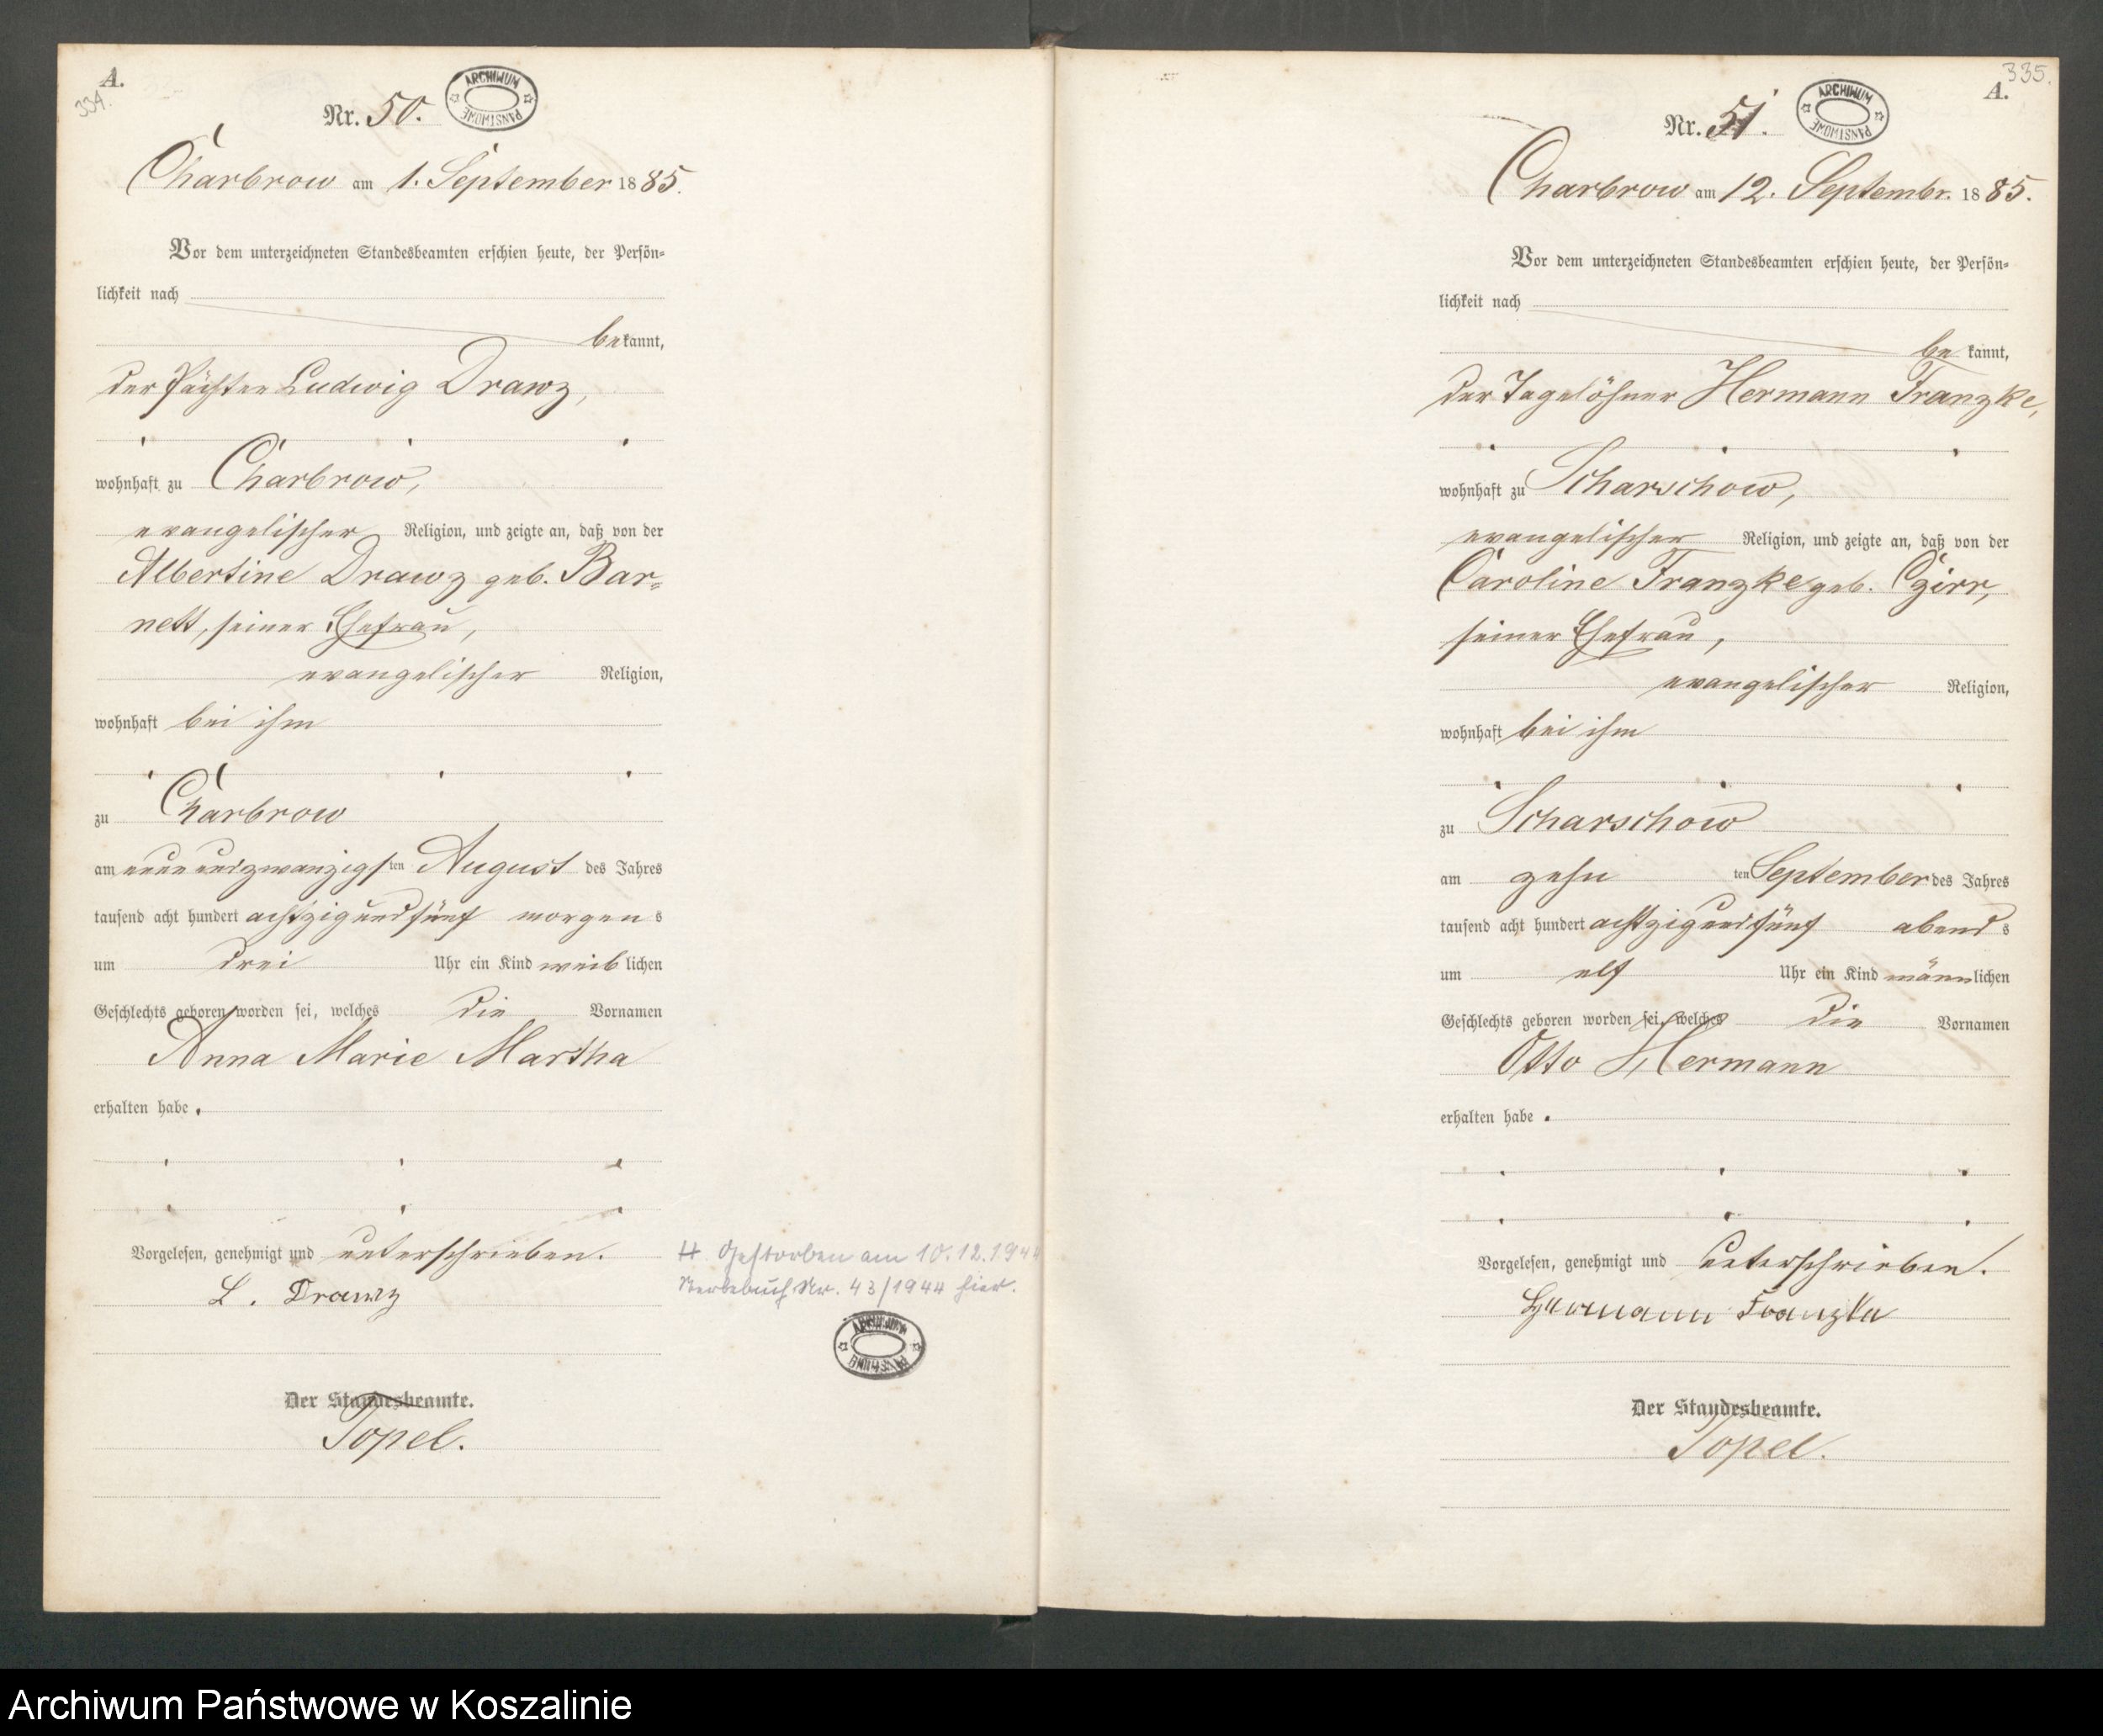 A.
334.
Nr. 50.
ARCHIWUM PAŃSTWOWE
Charbrow am 1. September 1885.
Vor dem unterzeichneten Standesbeamten erschien heute, der Persön-
lichkeit nach
bekannt,
der Pächter Ludwig Drawz,
wohnhaft zu Charbrow,
evangelischer Religion, und zeigte an, daß von der
Albertine Drawz geb. Bar-
nett, seiner Ehefrau,
evangelischer Religion,
wohnhaft bei ihm
zu Charbrow
am neunundzwanzigsten August des Jahres
tausend acht hundert achtzigundfünf morgens
um drei Uhr ein Kind weiblichen
Geschlechts geboren worden sei, welches die Vornamen
Anna Marie Martha
erhalten habe.
Vorgelesen, genehmigt und unterschrieben.
L. Drawz
Der Standesbeamte.
Topel.
H. Gestorben am 10.12.1944
Sterbebuch Nr. 43/1944 hier.
ARCHIWUM PAŃSTWOWE
335.
A.
Nr. 51.
ARCHIWUM PAŃSTWOWE
Charbrow am 12. Septembr. 1885.
Vor dem unterzeichneten Standesbeamten erschien heute, der Persön-
lichkeit nach
bekannt,
der Tagelöhner Hermann Franzke,
wohnhaft zu Scharschow,
evangelischer Religion, und zeigte an, daß von der
Caroline Franzke geb. Czirr,
seiner Ehefrau,
evangelischer Religion,
wohnhaft bei ihm
zu Scharschow
am zehnten September des Jahres
tausend acht hundert achtzigundfünf abends
um elf Uhr ein Kind männlichen
Geschlechts geboren worden sei, welches die Vornamen
Otto Hermann
erhalten habe.
Vorgelesen, genehmigt und unterschrieben.
Hermann Franzke
Der Standesbeamte.
Topel.
Archiwum Państwowe w Koszalinie